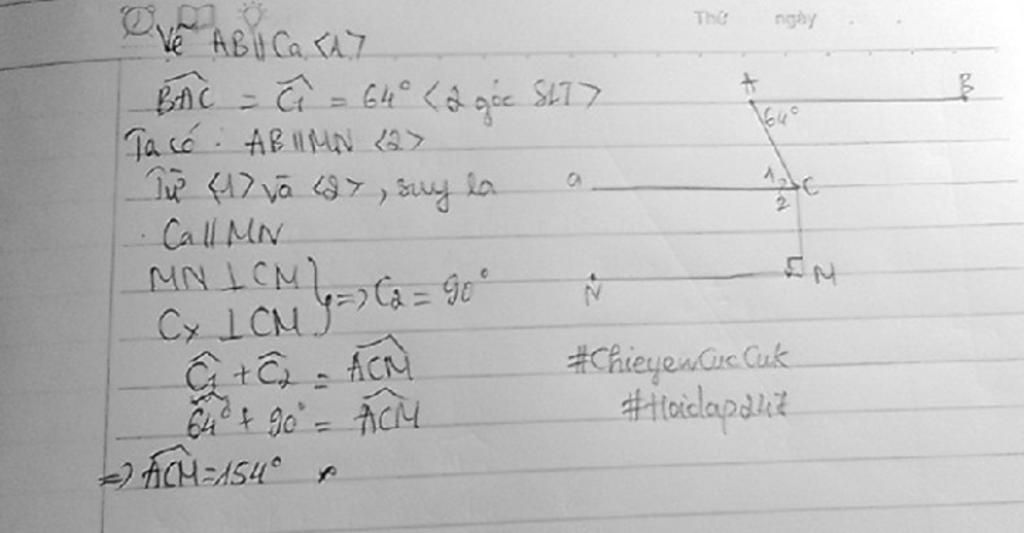 Thứ ngày
Vẽ AB // Ca <1>
BAC = C1 = 64° <2 góc SLT>
Ta có : AB // MN <2>
Từ <1> và <2>, suy la
Ca // MN
MN ⊥ CM
Cx ⊥ CM } => C2 = 90°
C1 + C2 = ACM
64° + 90° = ACM
=> ACM = 154°
A B
64°
a 1 C
2
N M
#ChieyewCucCuk
#Hoidap247